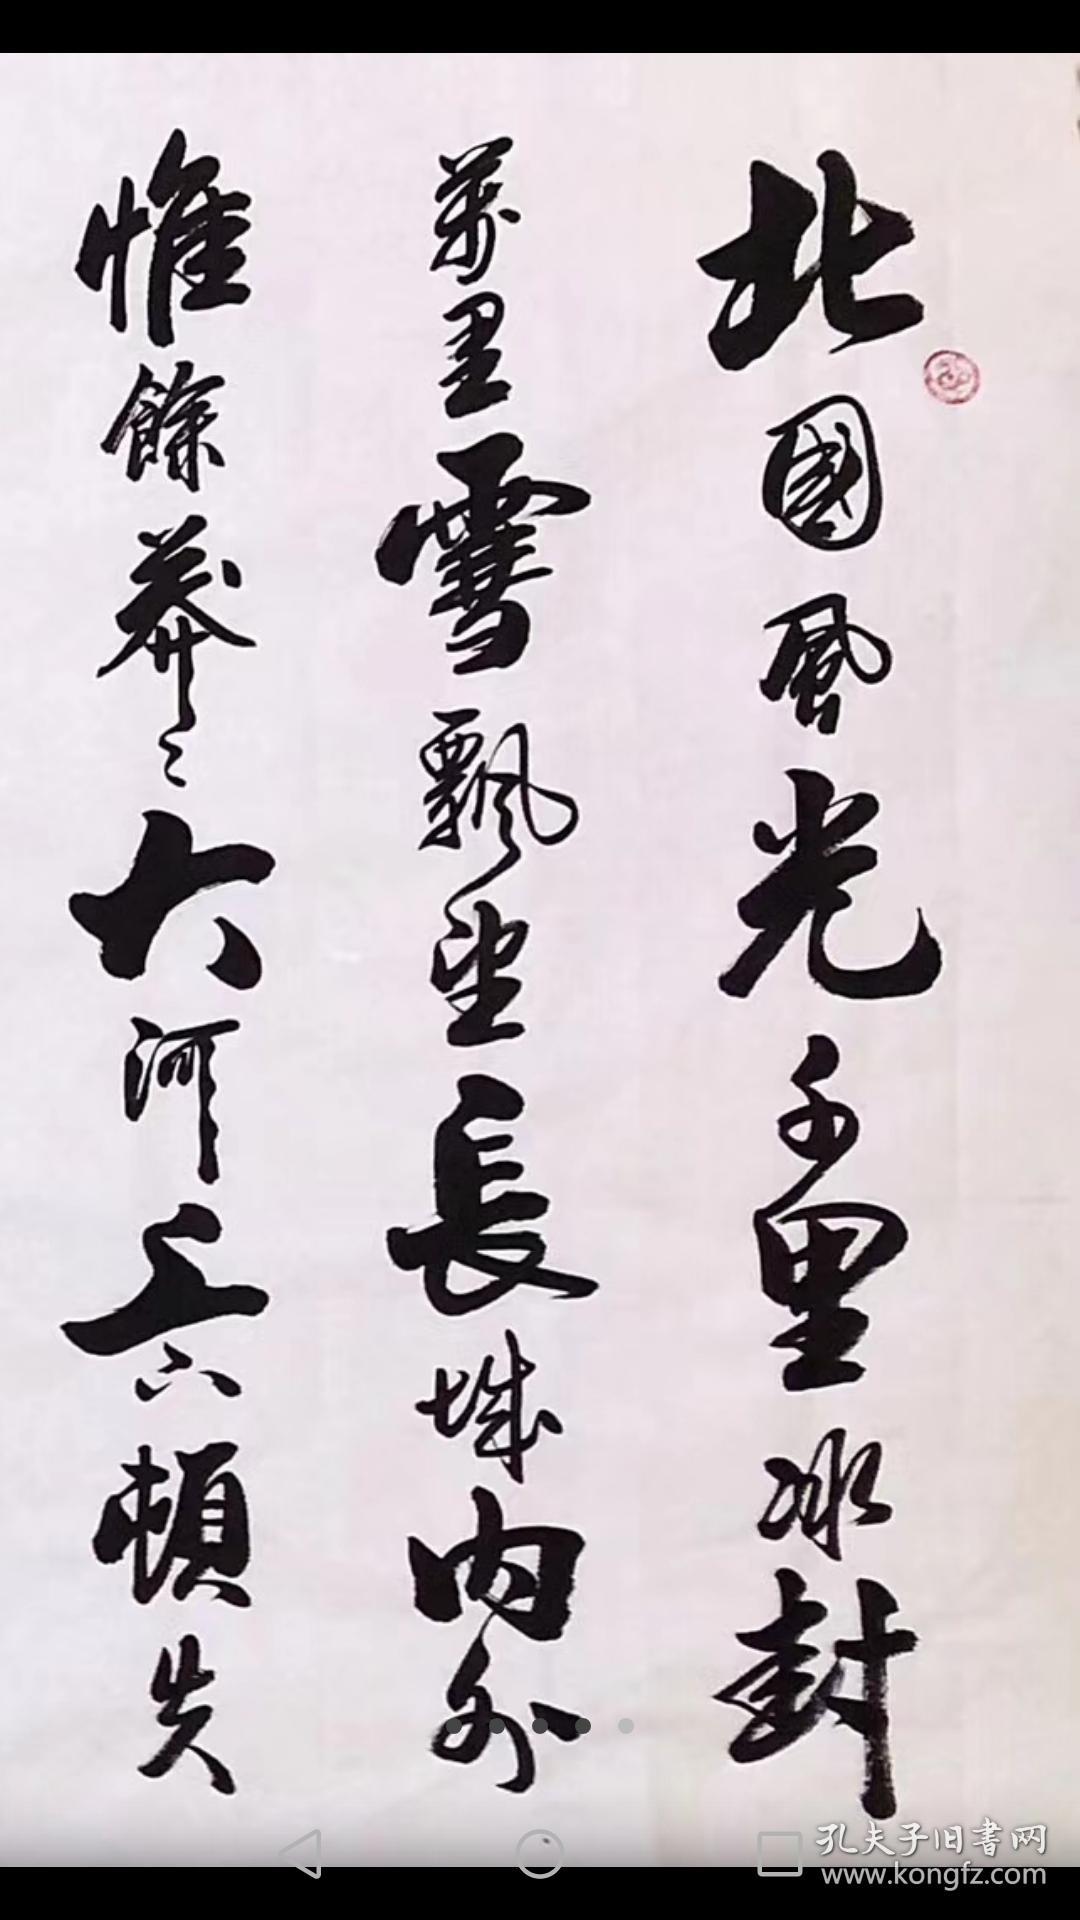 北國風光千里冰封
萬里雪飄望長城内外
惟餘莽〻大河上下頓失
孔夫子旧書网
www.kongfz.com